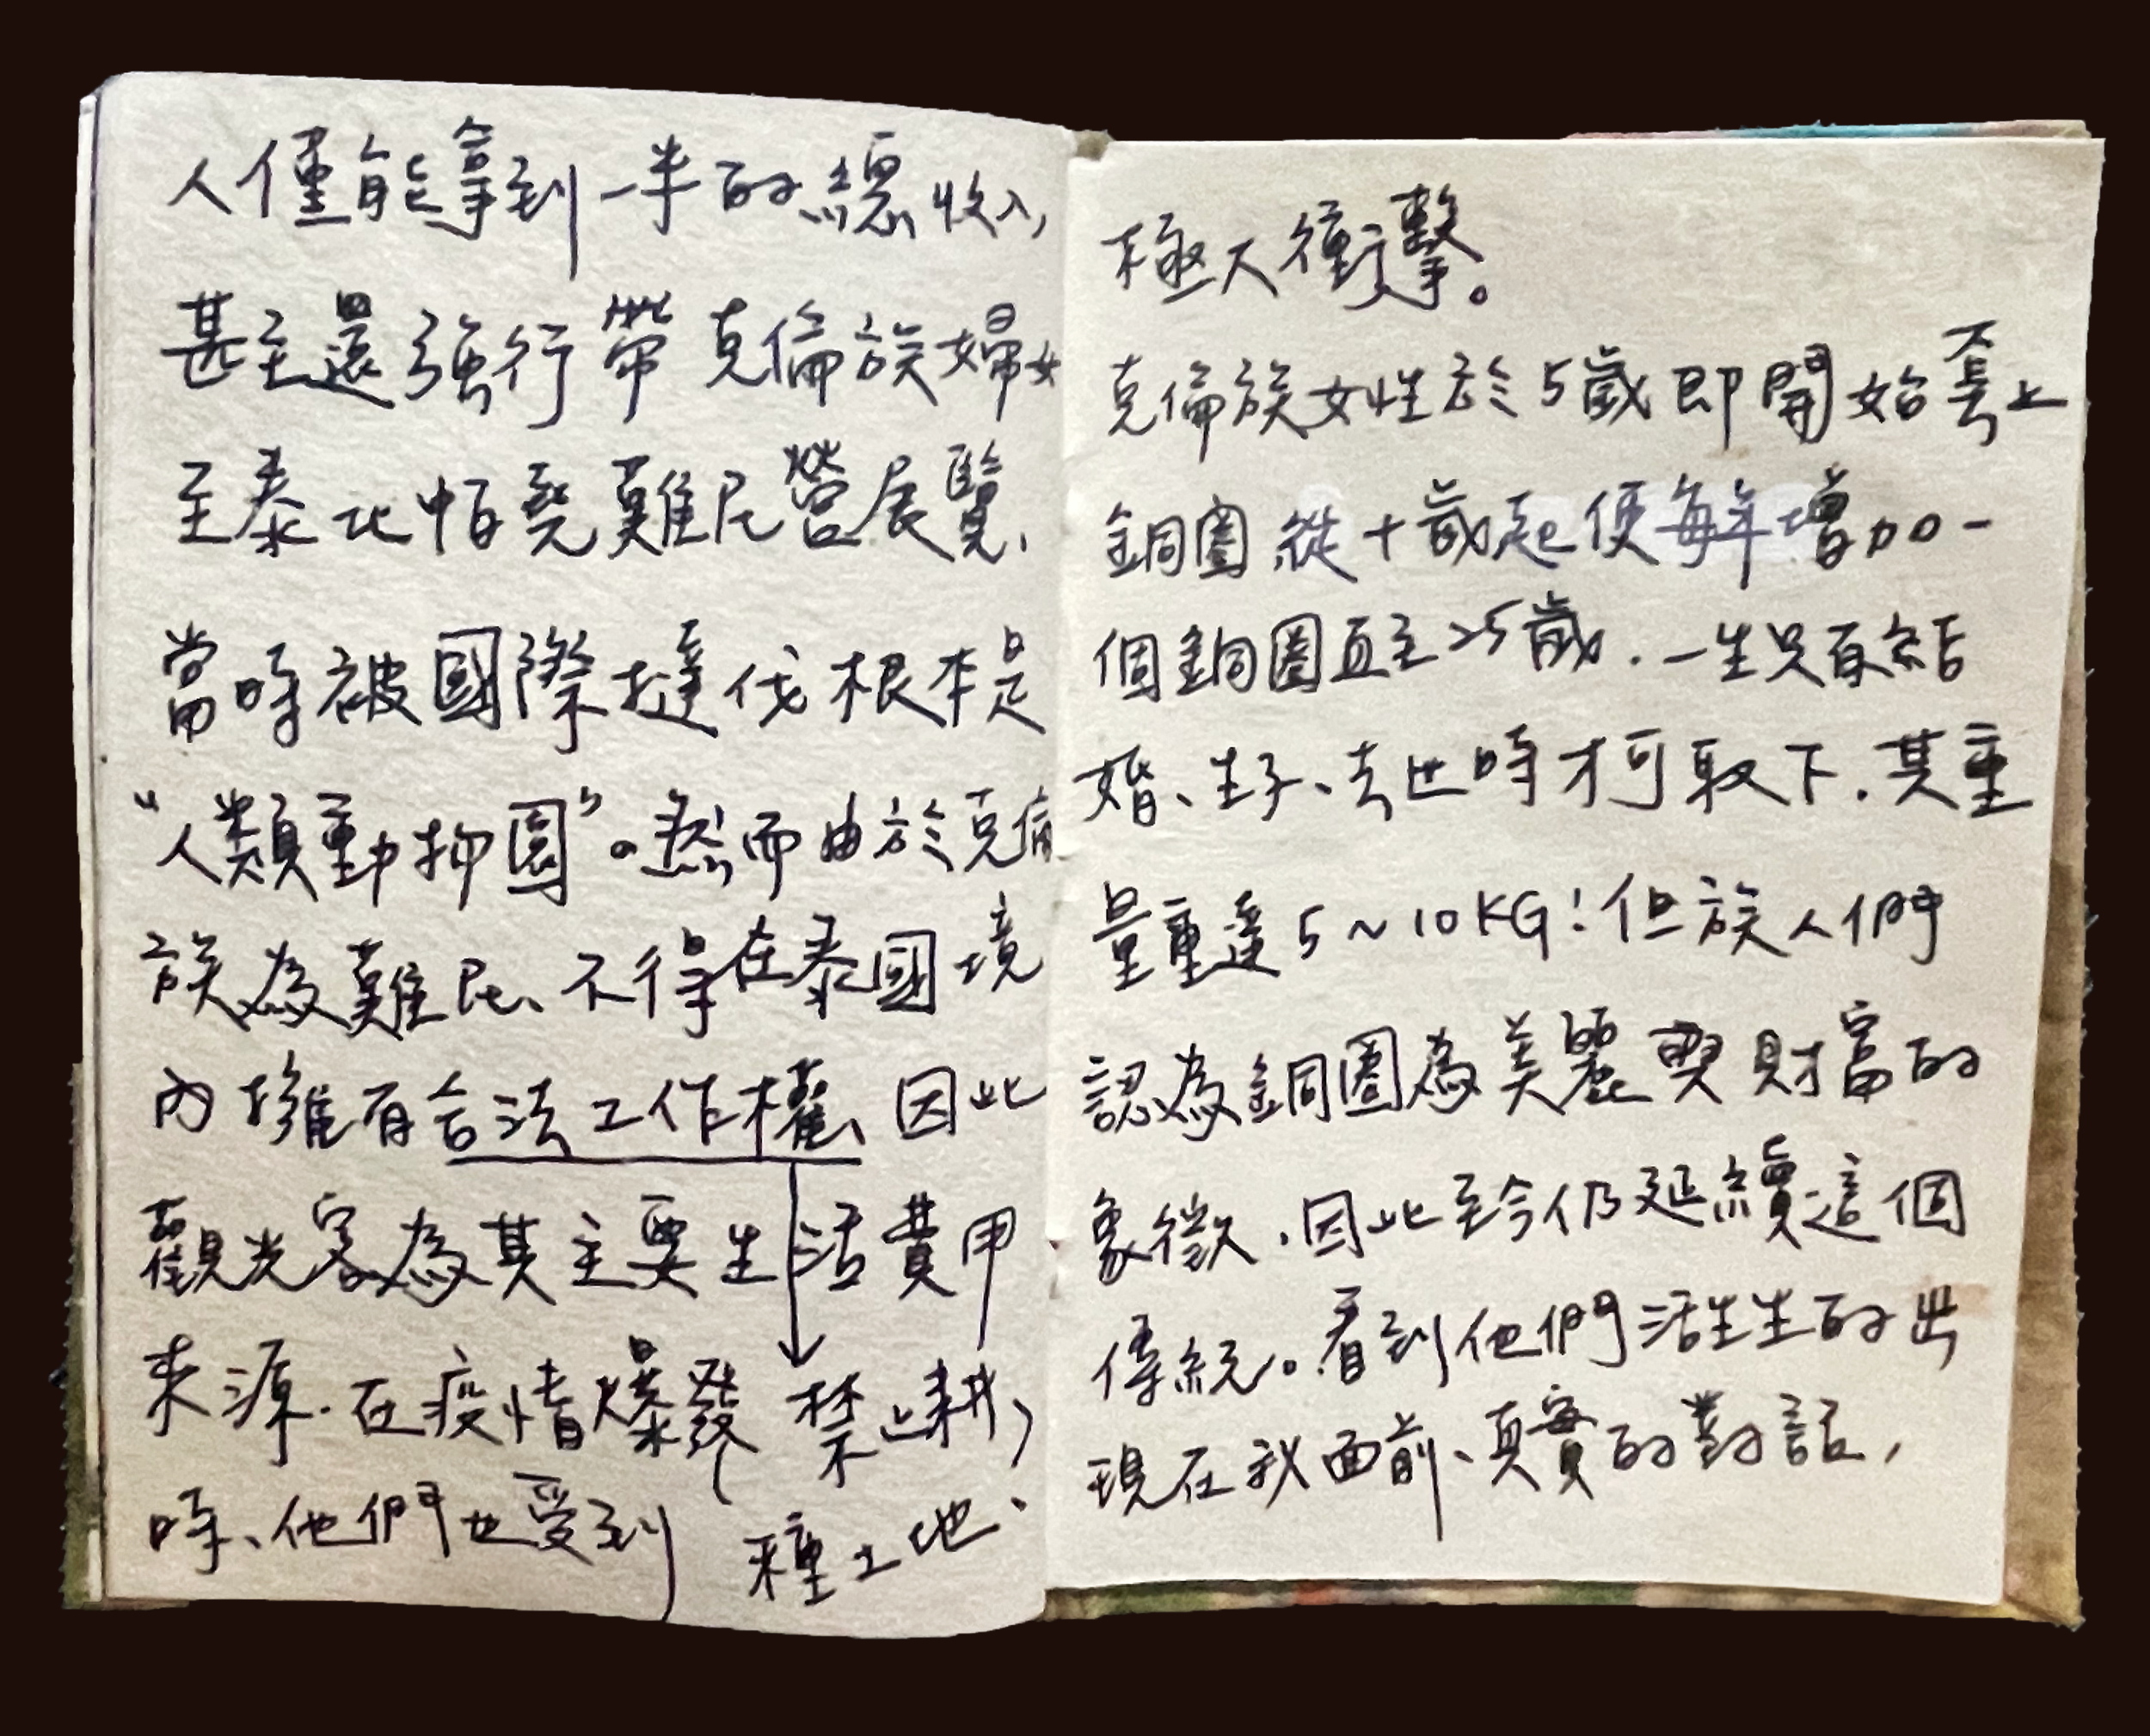 人僅能拿到一半的總收入,
甚至還強行帶克倫族婦女
至泰北帕堯難民營展覽、
當時被國際撻伐根本是
“人類動物園”。然而由於克倫
族為難民、不得在泰國境
內擁有合法工作權、因此
觀光客為其主要生活費用
來源.在疫情爆發
時、他們也受到
禁止耕
種土地、
極大衝擊。
克倫族女性於5歲即開始套上
銅圈 從十歲起便每年增加一
個銅圈直至25歲.一生只有結
婚、生子、去世時才可取下.其重
量重達5~10KG!但族人們
認為銅圈為美麗與財富的
象徵.因此至今仍延續這個
傳統。看到他們活生生的出
現在我面前、真實的對話,